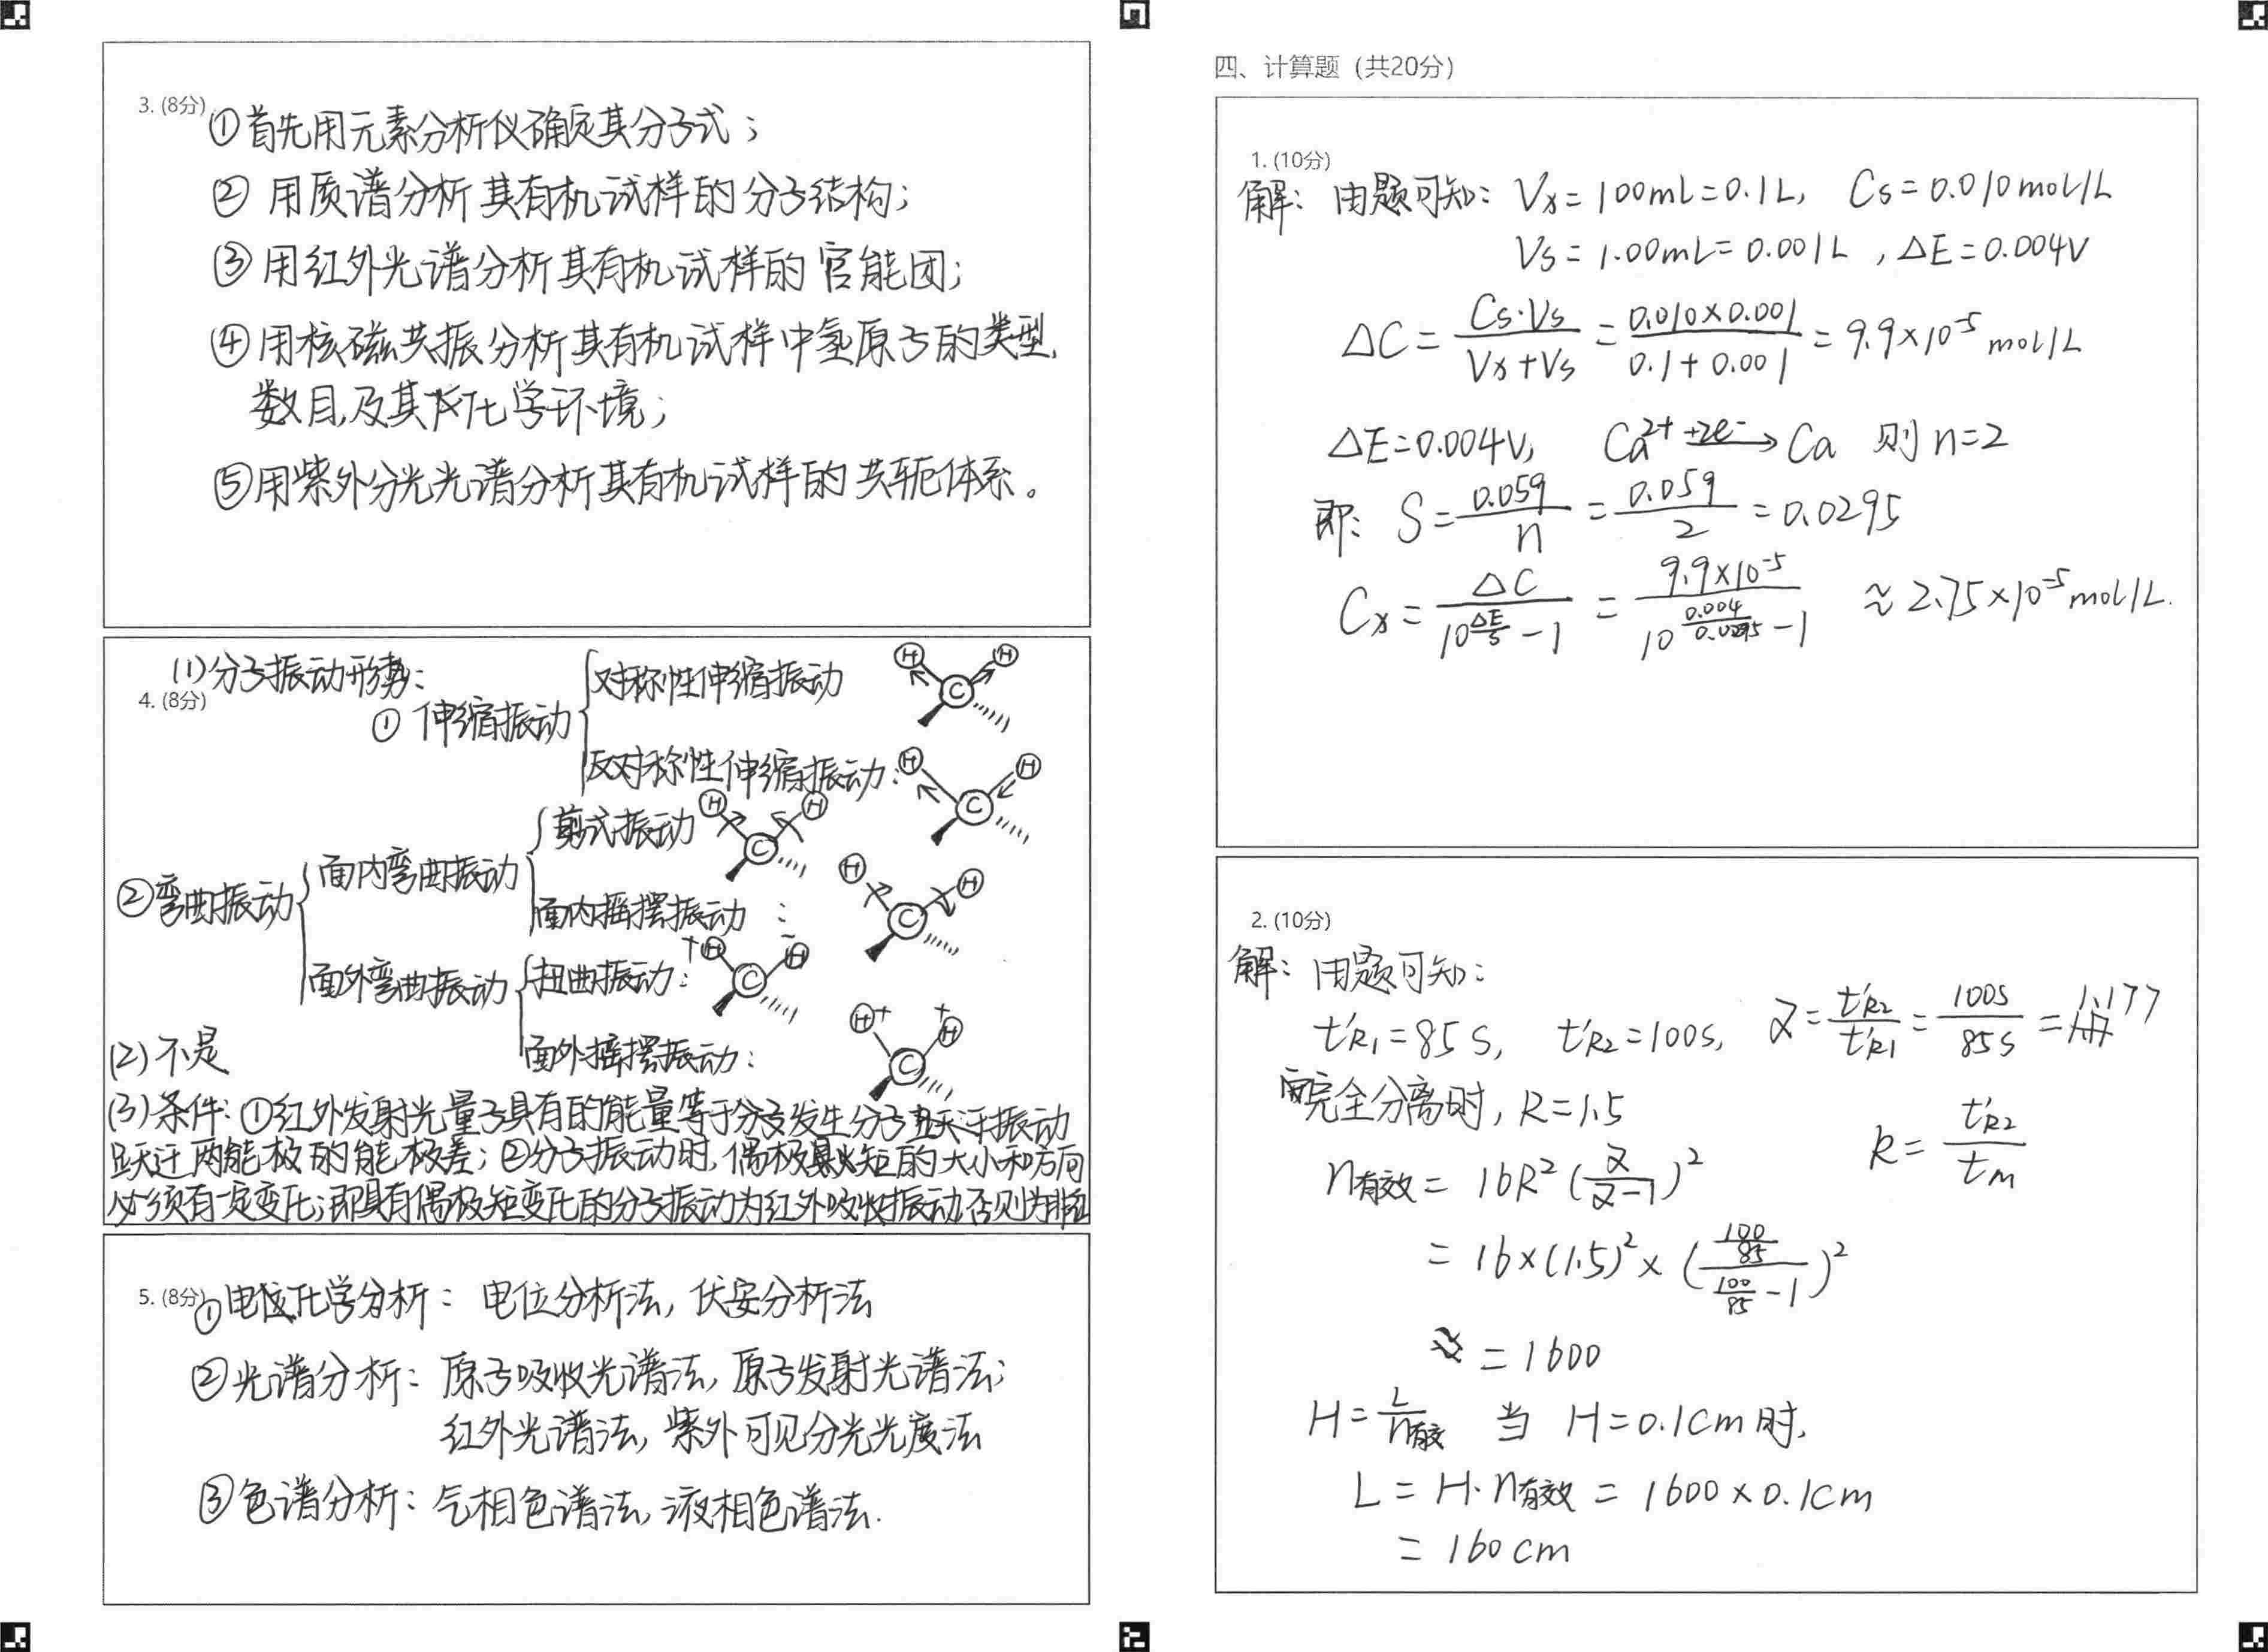 3. (8分)
①首先用元素分析仪确定其分子式；
② 用质谱分析其有机试样的分子结构；
③ 用红外光谱分析其有机试样的官能团；
④ 用核磁共振分析其有机试样中氢原子的类型、
数目及其化学环境；
⑤用紫外分光光谱分析其有机试样的共轭体系。
4. (8分)
(1)分子振动形势：
①伸缩振动
对称性伸缩振动
反对称性伸缩振动：
②弯曲振动
面内弯曲振动
剪式振动
面内摇摆振动：
面外弯曲振动
扭曲振动：
面外摇摆振动：
(2)不是
(3)条件：①红外发射光量子具有的能量等于分子发生振动
跃迁两能极的能极差；②分子振动时，偶极矩的大小和方向
必须有一定变化；即具有偶极矩变化的分子振动为红外吸收振动，否则为非红
5. (8分)
①电位化学分析：电位分析法，伏安分析法
②光谱分析：原子吸收光谱法，原子发射光谱法；
红外光谱法，紫外可见分光光度法
③色谱分析：气相色谱法，液相色谱法.
四、计算题（共20分）
1. (10分)
解：由题可知：Vx = 100mL = 0.1L, Cs = 0.010mol/L
Vs = 1.00mL = 0.001L, ΔE = 0.004V
ΔC = Cs·Vs / (Vx+Vs) = 0.010×0.001 / (0.1+0.001) = 9.9×10⁻⁵ mol/L
ΔE=0.004V, Ca²⁺ +2e⁻ → Ca 则 n=2
即：S = 0.059/n = 0.059/2 = 0.0295
Cx = ΔC / (10^(ΔE/S) - 1) = 9.9×10⁻⁵ / (10^(0.004/0.0295) - 1) ≈ 2.75×10⁻⁵ mol/L.
2. (10分)
解：由题可知：
t'R1 = 85s, t'R2 = 100s, α = t'R2/t'R1 = 100s/85s = 1.177
完全分离时, R=1.5
R = t'R2/tm
n有效 = 16R²(α/(α-1))²
= 16×(1.5)²×((100/85)/(100/85 - 1))²
= 1600
H = L/n有效 当 H=0.1cm时,
L = H·n有效 = 1600×0.1cm
= 160cm